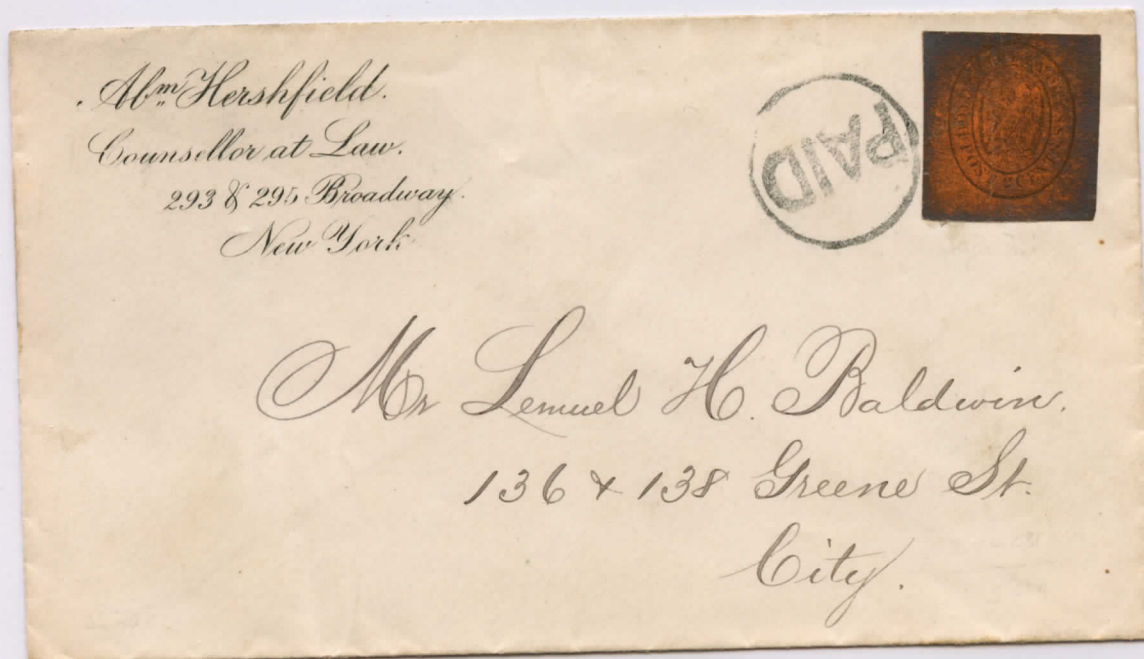 Abm Hershfield.
Counsellor at Law.
293 & 295 Broadway.
New York
PAID
Mr Lemuel H. Baldwin.
136 & 138 Greene St.
City.